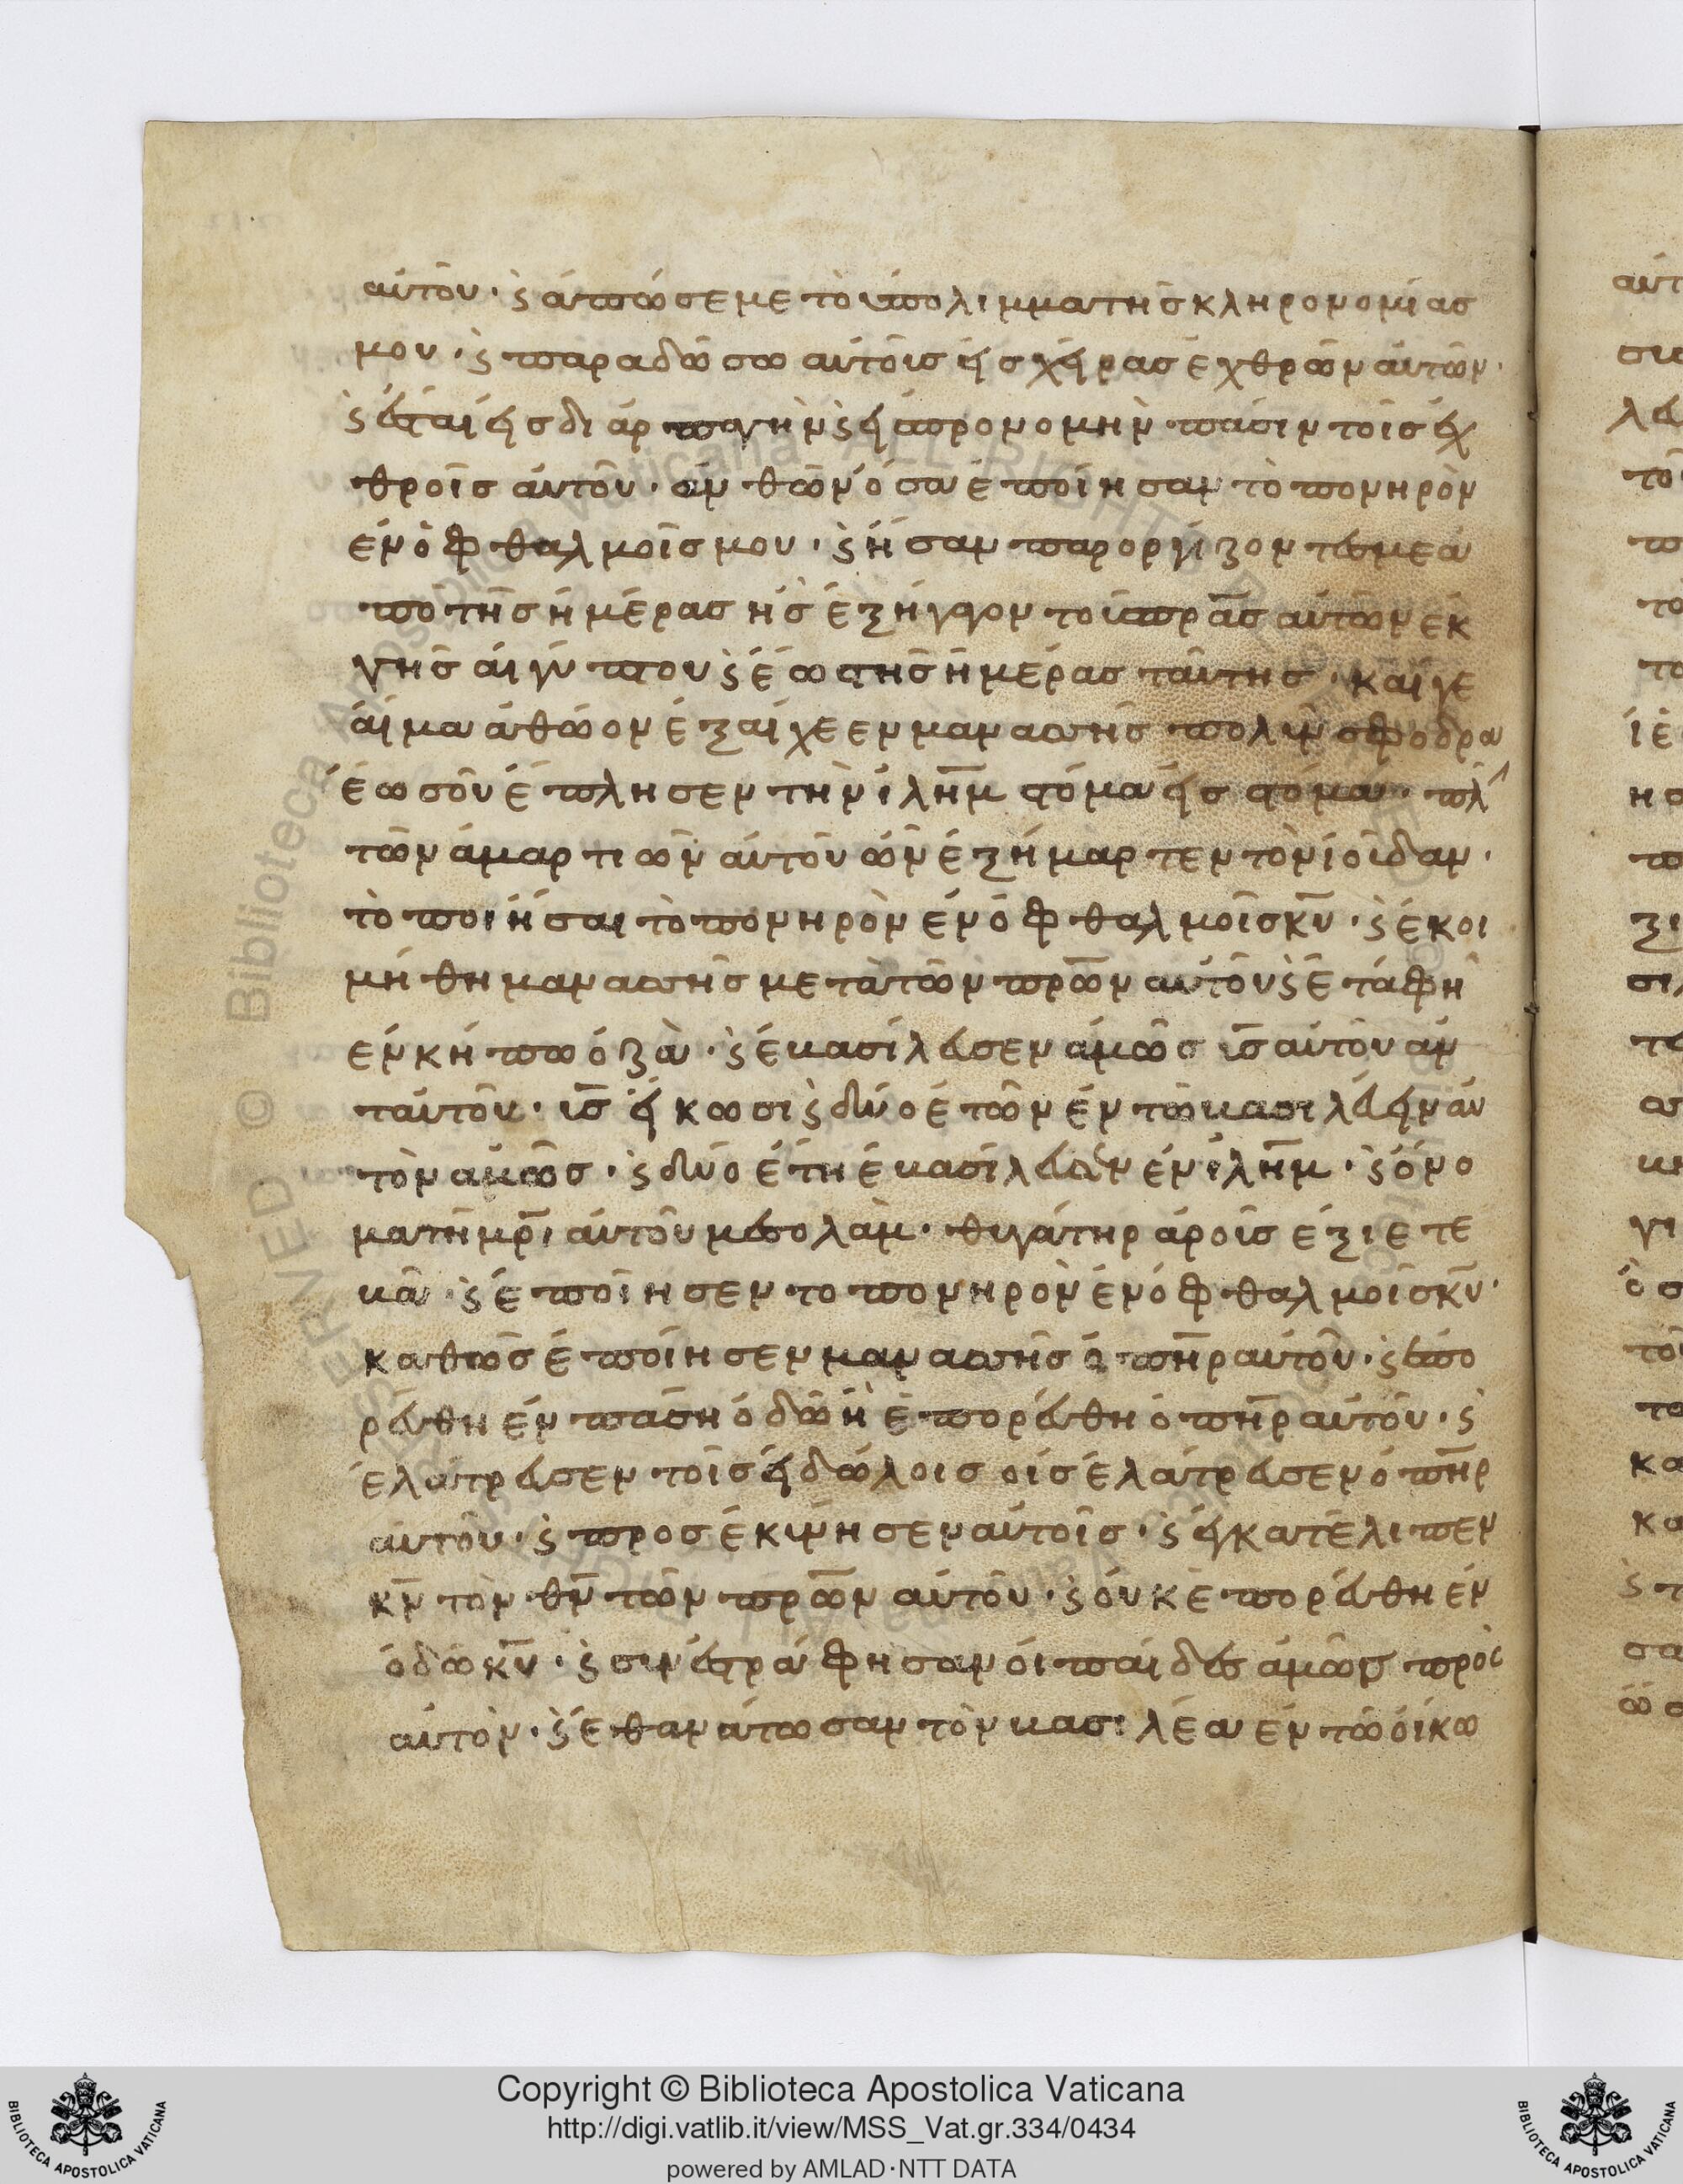 αὐτοῦ · ϛ ἀπώσεμε τὸ ὑπολιμμα τῆς κληρονομίας
μου · ϛ παραδώσω αὐτοῖς εἰς χεῖρας ἐχθρῶν αὐτῶν ·
ϛ ἔσται εἰς διάρπαγὴν ϛ εἰς προνομὴν πάσιν τοῖς ἐχ
θροῖς αὐτοῦ · ἀν θῶν ὅσα ἐποίησαν τὸ πονηρὸν
ἐν ὀφθαλμοῖς μου · ϛ ἦσαν παροργίζοντές με ἀ
πὸ τῆς ἡμέρας ἧς ἐξήγαγον το ὑσ πρ̅α̅ς αὐτῶν ἐκ
γῆς αἰγύπτου ϛ ἕως τῆς ἡμέρας ταύτης · καί γε
αἷμα ἀθώον ἐξαίχεεν μανασσῆς πολὺν σφοδρα
ἕως οὗ ἔπλησεν τὴν ἰλη̅μ στόμα εἰς στόμα · πλ
τῶν ἁμαρτιῶν αὐτοῦ ὧν ἐξήμαρτεν τὸν ἰοῦδαν ·
τὸ ποιῆσαι τὸ πονηρὸν ἐν ὀφθαλμοῖς κ̅υ̅ · ϛ ἐκοι
μήθη μανασσῆς μετὰ τῶν πρ̅ω̅ν αὐτοῦ ϛ ἐτάφη
ἐν κήπω ὀζὰ · ϛ ἐβασίλευσεν ἀμῶς υ̅ς αὐτοῦ ἀν
ταὐτοῦ · υ̅ς εἴκωσι ϛ δύο ἐτῶν ἐν τῶ βασιλεύειν αὐ
τὸν ἀμῶς · ϛ δύο ἔτη ἐβασίλευσεν ἐν ἰλη̅μ · ϛ ὄνο
μα τῆ μρ̅ι αὐτοῦ μεσολὰμ · θυγάτηρ ἀροῖς ἐξ ἰετε
βᾶ · ϛ ἐποίησεν το πονηρὸν ἐν ὀφθαλμοῖς κ̅υ̅ ·
καθῶς ἐποίησεν μανασσῆς ὁ πη̅ρ αὐτοῦ · ϛ ἐπο
ρεύθη ἐν πάση ὁδῶ ἧ ἐπορεύθη ὁ πη̅ρ αὐτοῦ · ϛ
ἐλάτρευσεν τοῖς εἰδώλοις οἷς ἐλάτρευσεν ὁ πη̅ρ
αὐτοῦ · ϛ προσέκυνησεν αὐτοῖς · ϛ ἐγκατέλιπεν
κ̅ν̅ τὸν θ̅ν̅ τῶν πρ̅ω̅ν αὐτοῦ · ϛ οὐκ ἐπορεύθη ἐν
ὁδῶ κ̅υ̅ · ϛ συνεστράφησαν οἱ παίδες ἀμῶς πρὸς
αὐτὸν · ϛ ἐθανάτωσαν τὸν βασιλέα ἐν τῶ οἴκω
Copyright © Biblioteca Apostolica Vaticana
http://digi.vatlib.it/view/MSS_Vat.gr.334/0434
powered by AMLAD·NTT DATA